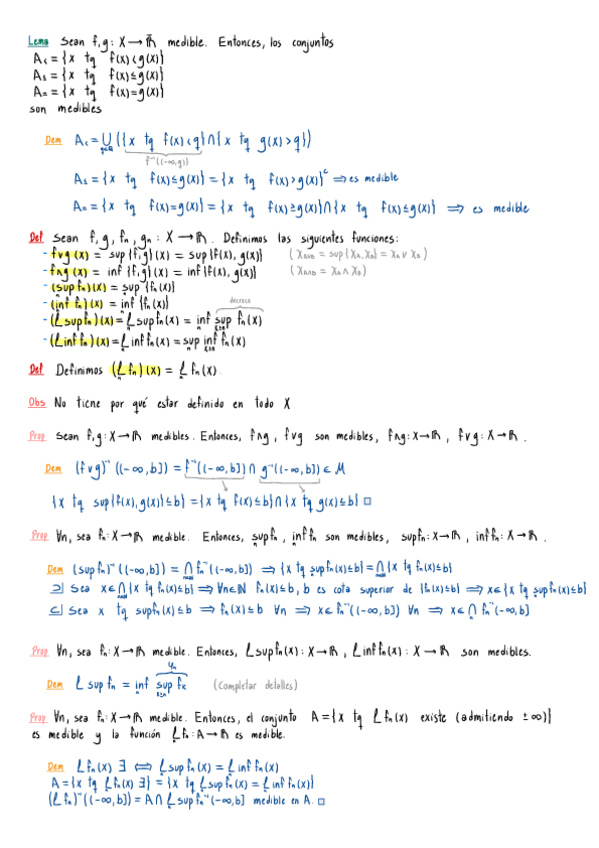 Lema Sean f,g: X → ℝ̄ medible. Entonces, los conjuntos
A< = {x tq f(x)<g(x)}
A≤ = {x tq f(x)≤g(x)}
A= = {x tq f(x)=g(x)}
son medibles
Dem A< = ⋃ ({x tq f(x)<q}∩{x tq g(x)>q})
q∈Q
f⁻¹((-∞,q))
A≤ = {x tq f(x)≤g(x)} = {x tq f(x)>g(x)}ᶜ ⟹ es medible
A= = {x tq f(x)=g(x)} = {x tq f(x)≥g(x)}∩{x tq f(x)≤g(x)} ⟹ es medible
Def Sean f, g, fₙ, gₙ : X → ℝ. Definimos las siguientes funciones:
- f∨g (x) = sup {f,g}(x) = sup{f(x), g(x)} (χA∪B = sup{χA, χB} = χA ∨ χB)
- f∧g (x) = inf {f,g}(x) = inf{f(x), g(x)} (χA∩B = χA ∧ χB)
- (sup fₙ)(x) = sup {fₙ(x)}
- (inf fₙ)(x) = inf {fₙ(x)} decrece
- (ℒ sup fₙ)(x) = ℒ sup fₙ(x) = inf sup fₖ(x)
n k≥n
- (ℒ inf fₙ)(x) = ℒ inf fₙ(x) = sup inf fₖ(x)
n k≥n
Def Definimos (ℒ fₙ)(x) = ℒ fₙ(x).
Obs No tiene por qué estar definido en todo X
Prop Sean f,g: X → ℝ medibles. Entonces, f∧g, f∨g son medibles, f∧g: X → ℝ, f∨g: X → ℝ.
Dem (f∨g)⁻¹((-∞,b]) = f⁻¹((-∞,b]) ∩ g⁻¹((-∞,b]) ∈ M
{x tq sup{f(x), g(x)}≤b} = {x tq f(x)≤b}∩{x tq g(x)≤b} □
Prop ∀n, sea fₙ: X → ℝ medible. Entonces, sup fₙ, inf fₙ son medibles, sup fₙ: X → ℝ, inf fₙ: X → ℝ.
Dem (sup fₙ)⁻¹((-∞,b]) = ⋂ fₙ⁻¹((-∞,b]) ⟹ {x tq sup fₙ(x)≤b} = ⋂ {x tq fₙ(x)≤b}
⊇] Sea x∈⋂{x tq fₙ(x)≤b} ⟹ ∀n∈ℕ fₙ(x)≤b, b es cota superior de {fₙ(x)≤b} ⟹ x∈{x tq sup fₙ(x)≤b}
⊆] Sea x tq sup fₙ(x)≤b ⟹ fₙ(x)≤b ∀n ⟹ x∈fₙ⁻¹((-∞,b]) ∀n ⟹ x∈⋂ fₙ⁻¹(-∞,b]
Prop ∀n, sea fₙ: X → ℝ medible. Entonces, ℒ sup fₙ(x): X → ℝ, ℒ inf fₙ(x): X → ℝ son medibles.
Dem ℒ sup fₙ = inf sup fₖ (Completar detalles)
n k≥n
Prop ∀n, sea fₙ: X → ℝ medible. Entonces, el conjunto A = {x tq ℒ fₙ(x) existe (admitiendo ±∞)}
es medible y la función ℒ fₙ: A → ℝ es medible.
Dem ℒ fₙ(x) ∃ ⟺ ℒ sup fₙ(x) = ℒ inf fₙ(x)
A = {x tq ℒ fₙ(x) ∃} = {x tq ℒ sup fₙ(x) = ℒ inf fₙ(x)}
(ℒ fₙ)⁻¹((-∞,b]) = A ∩ ℒ sup fₙ⁻¹(-∞,b] medible en A. □